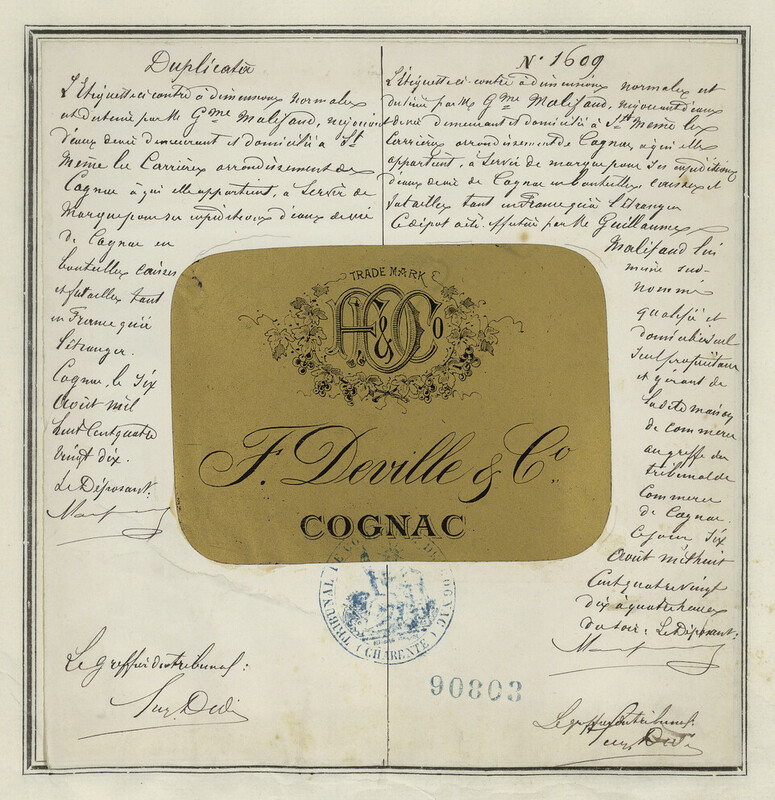 Duplicata
L'étiquette ci contre à dimensions normales
est destiné par Mr Gme Malifaud, négociant
d'eaux de vie demeurant et domicilié à St
Même les Carrières arrondissement de
Cognac à qui elle appartient, a servir de
Marque pour ses expéditions d'eaux de vie
de Cognac en
bouteilles caisses
et futailles tant
en France qu'à
l'étranger.
Cognac, le six
Août mil
huit cent quatre
vingt dix.
Le Déposant:
Le greffier du tribunal:
No 1609
L'étiquette ci contre à dimensions normales et
destiné par Mr Gme Malifaud, négociant d'eaux
de vie demeurant et domicilié à St Même les
Carrières arrondissement de Cognac, à qui elle
appartient, a servir de marque pour ses expéditions
d'eaux de vie de Cognac en bouteilles caisses et
futailles tant en France qu'à l'étranger
Ce dépôt a été effectué par Mr Guillaume
Malifaud lui
même sus-
nommé
qualifié et
domicilié seul
propriétaire
et gérant de
la dite maison
de commerce
au greffe du
tribunal de
Commerce
de Cognac.
Ce jour six
Août mil huit
cent quatre vingt
dix à quatre heures
du soir: Le Déposant:
Le greffier du tribunal:
TRADE MARK
F. D. & Co
F. Deville & Co.
COGNAC
TRIBUNAL DE COGNAC (CHARENTE)
90803